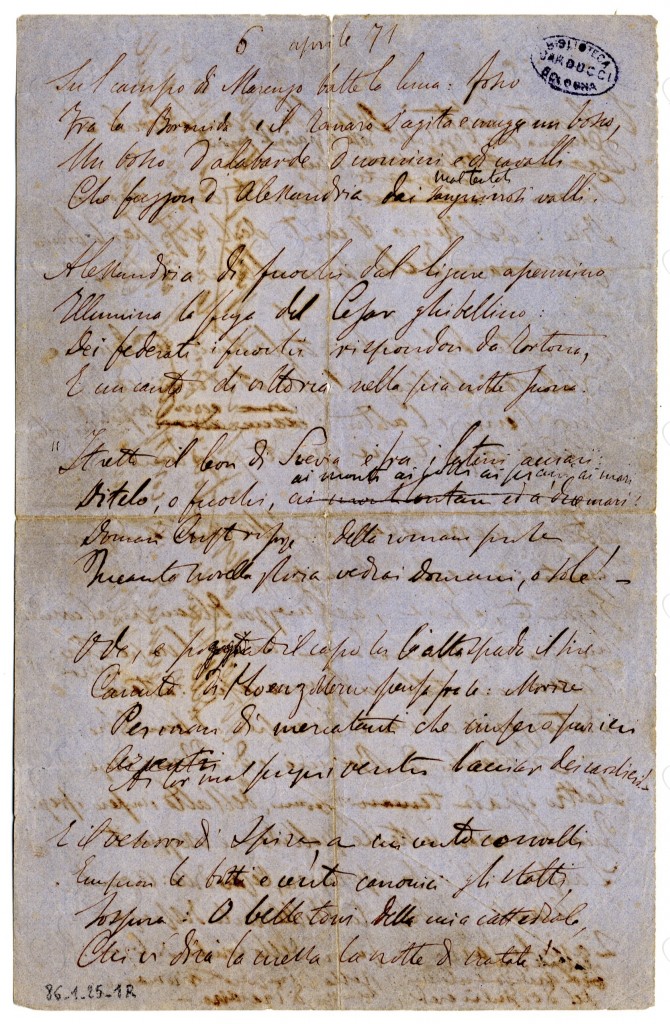 6 aprile 71
BIBLIOTECA
CARDUCCI
BOLOGNA
Sul campo di Marengo batte la luna: fosco
Tra la Bormida e il Tanaro s'agita e mugge un bosco,
Un bosco d'alabarde d'uomini e di cavalli
mal tentati
Che fuggon d'Alessandria dai sanguinosi valli.
Alessandria di fuochi dal ligure apennino
Illumina la fuga del Cesar ghibellino:
Dei federati i fuochi rispondon da Tortona,
E un canto di vittoria nella pia notte suona.
"Stretto il leon di Svevia è fra i latini acciari:
ai monti ai colli ai piani ai mari
Ditelo, o fuochi, ai monti lontani ed a due mari!
Doman Cristo risorge: della romana prole
Quanta novella gloria vedrai domani, o sole! —
Ode, e poggiato il capo su l'alta spada il sire
Canuto di Hoenzollern pensa fra se: Morire
Per man di mercatanti che cinsero pur ieri
Ai ventri
Ai lor mal pingui ventri l'acciar dei cavalieri! —
E il vescovo di Spira, a cui cento convalli
Empion le botti e cento canonici gli stalli,
Sospira: O belle torri della mia cattedrale,
Chi vi dirà la messa la notte di natale! —
86-1-25-1R